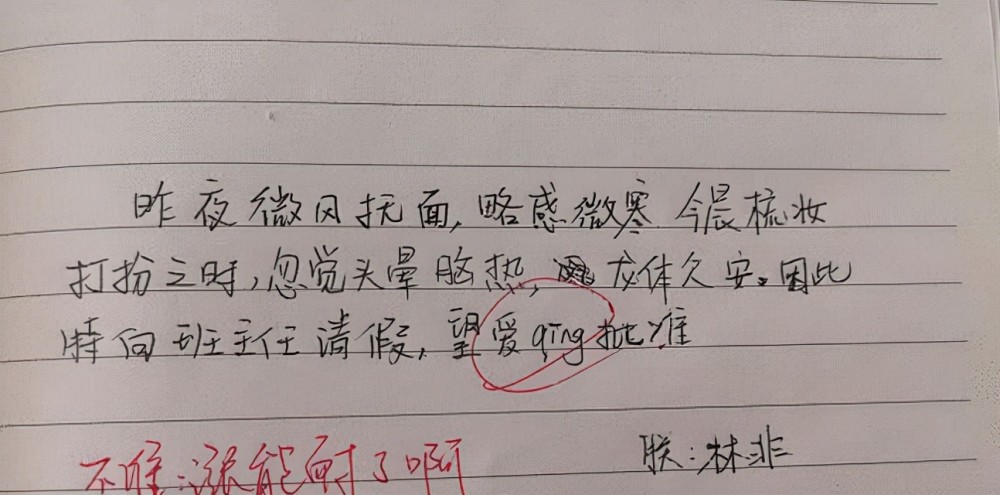 昨夜微风抚面，略感微寒 今晨梳妆
打扮之时，忽觉头晕脑热，龙体欠安。因此
特向班主任请假，望爱qing批准
朕：林非
不准：涨能耐了啊